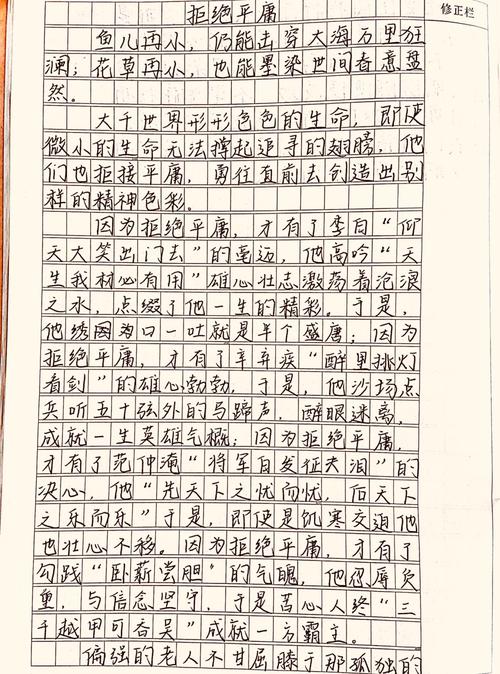 修正栏
拒绝平庸
鱼儿再小，仍能击穿大海万里狂
澜；花草再小，也能墨染世间春意盎
然。
大千世界形形色色的生命，即使
微小的生命无法撑起追寻的翅膀，他
们也拒接平庸，勇往直前去创造出别
样的精神色彩。
因为拒绝平庸，才有了李白“仰
天大笑出门去”的豪迈，他高吟“天
生我材必有用”雄心壮志激荡着沧浪
之水，点缀了他一生的精彩。于是，
他绣口一吐就是半个盛唐；因为
拒绝平庸，才有了辛弃疾“醉里挑灯
看剑”的雄心勃勃，于是，他沙场点
兵听五十弦外的马蹄声，醉眼迷离，
成就一生英雄气概；因为拒绝平庸，
才有了范仲淹“将军白发征夫泪”的
决心，他“先天下之忧而忧，后天下
之乐而乐”于是，即使是饥寒交迫他
也壮心不移。因为拒绝平庸，才有了
勾践“卧薪尝胆”的气魄，他忍辱负
重，与信念坚守，于是苦心人终“三
千越甲可吞吴”成就一方霸主。
倔强的老人不甘屈膝于那孤独的